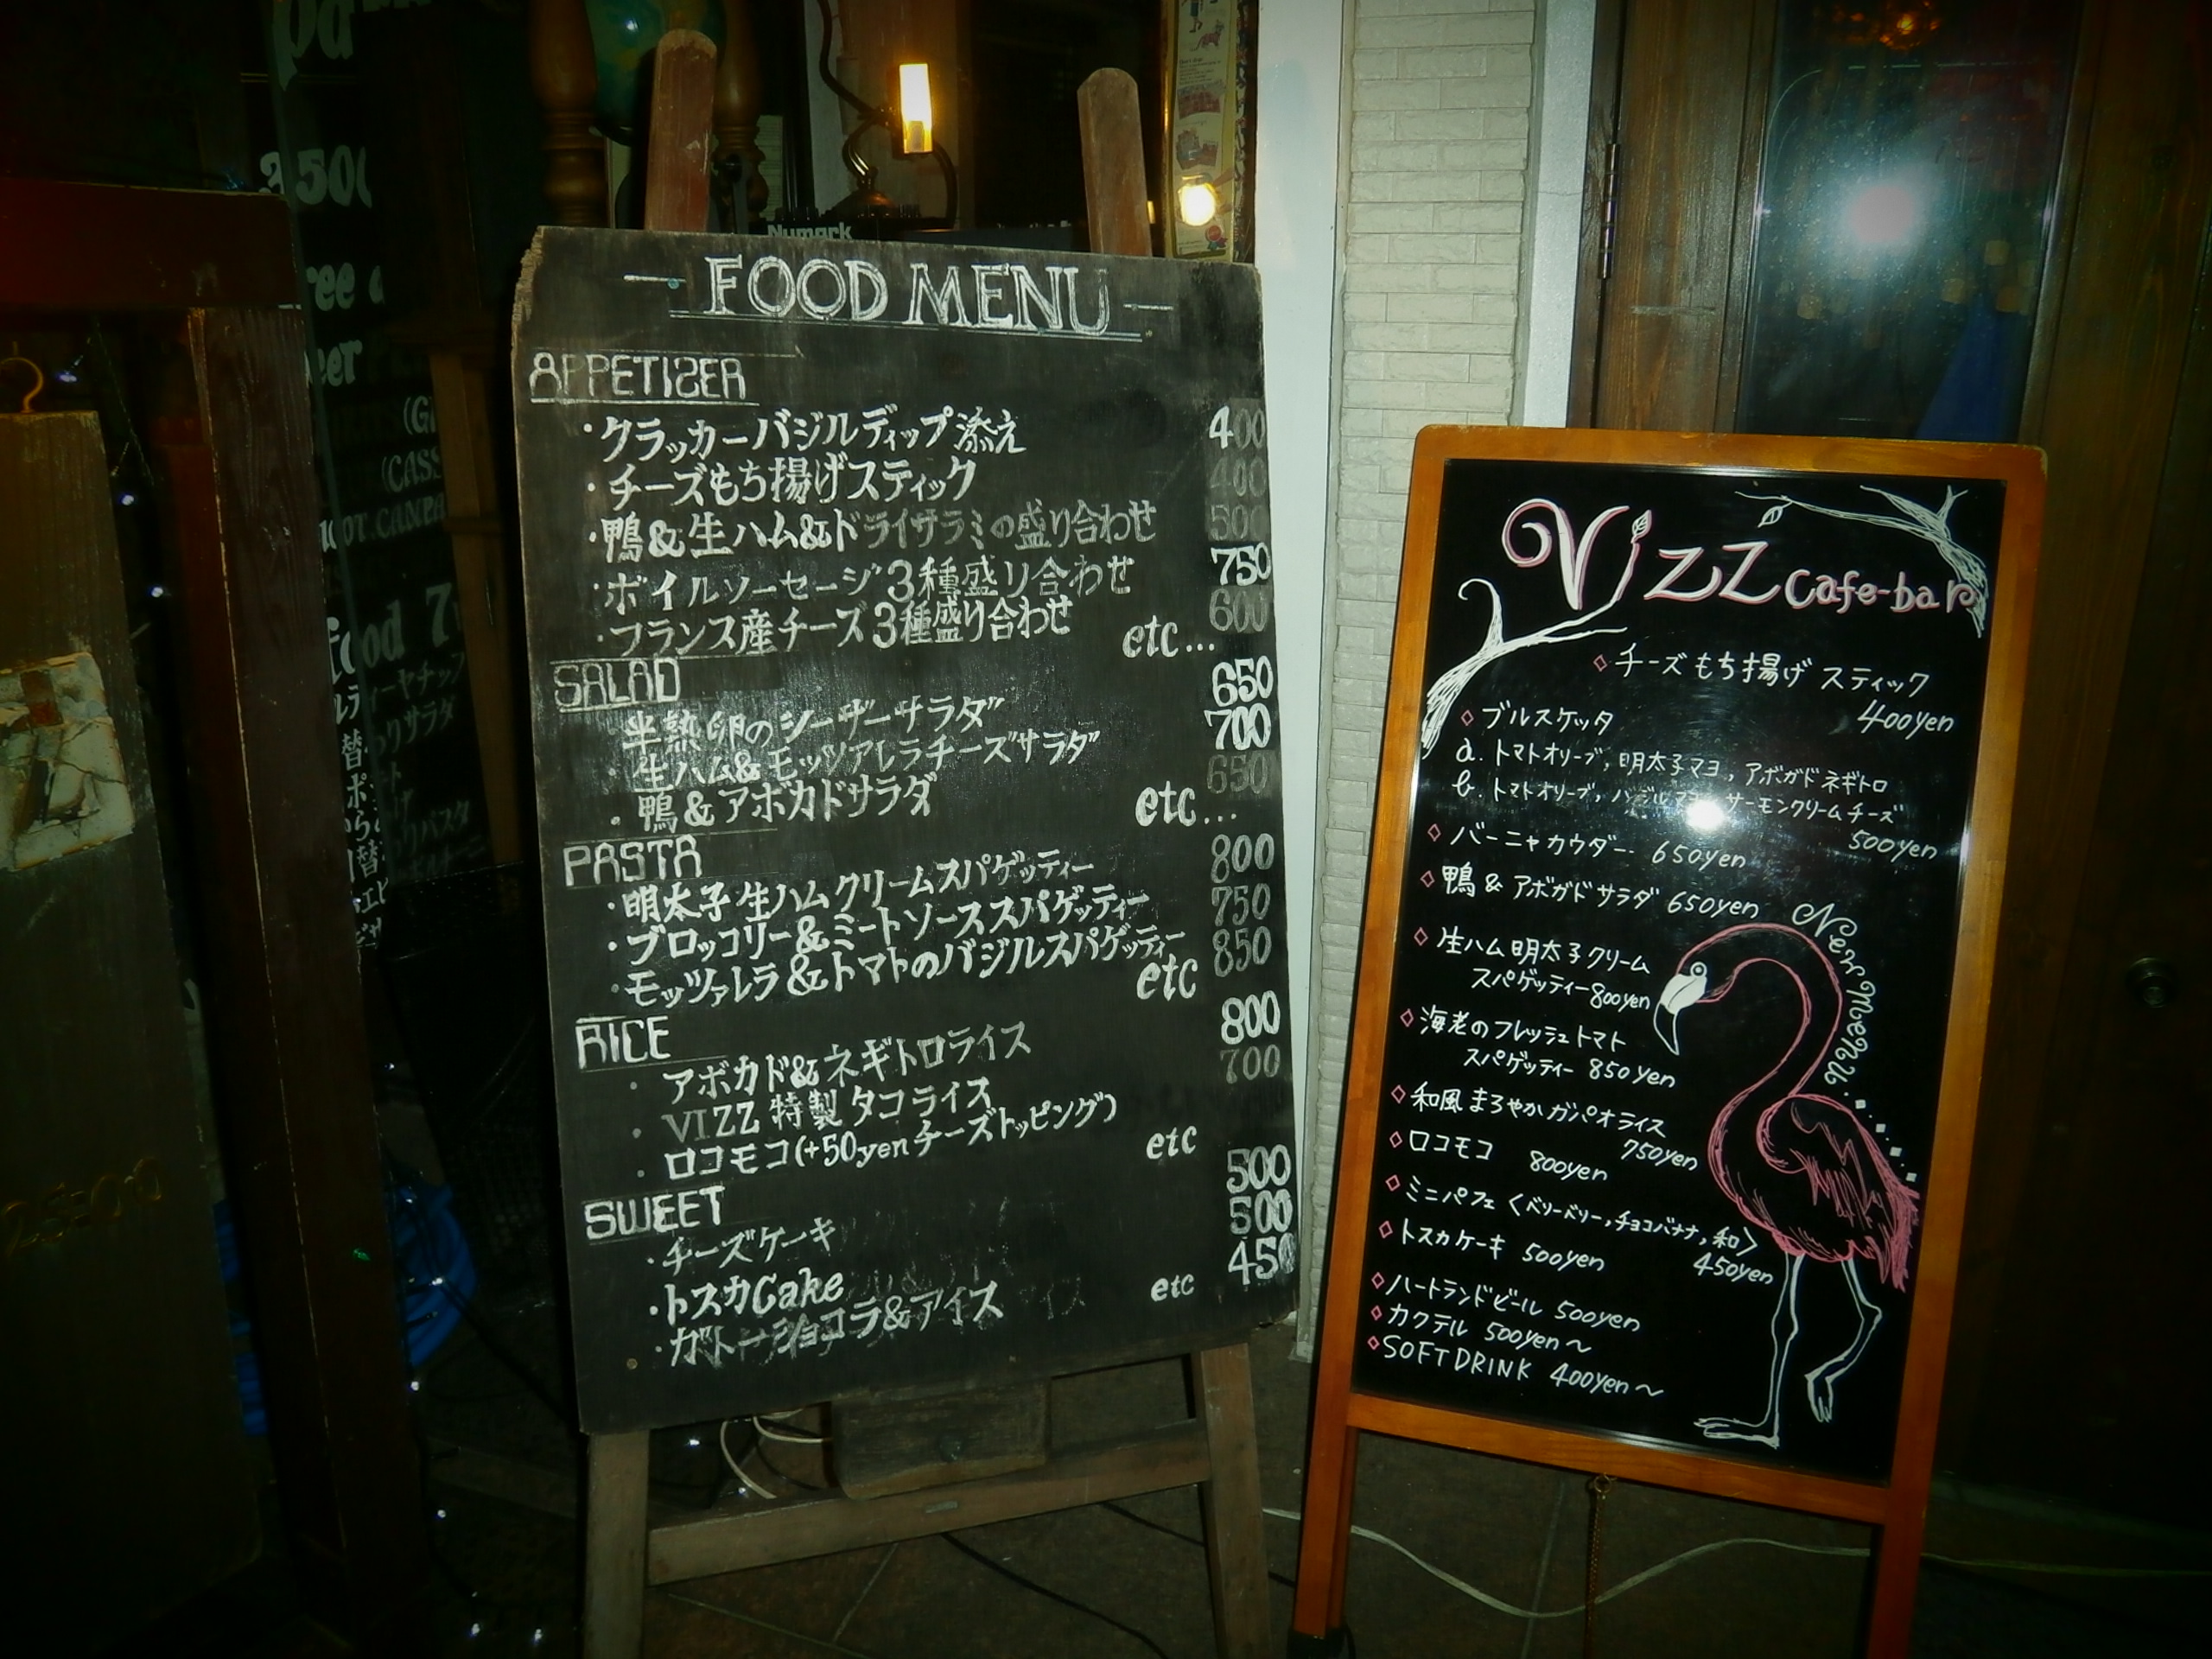 Numark
FOOD MENU
APPETIZER
・クラッカーバジルディップ添え 400
・チーズもち揚げスティック 400
・鴨&生ハム&ドライサラミの盛り合わせ 500
・ボイルソーセージ3種盛り合わせ 750
・フランス産チーズ3種盛り合わせ 600
etc...
SALAD
・半熟卵のシーザーサラダ 650
・生ハム&モッツアレラチーズサラダ 700
・鴨&アボカドサラダ 650
etc...
PASTA
・明太子生ハムクリームスパゲッティー 800
・ブロッコリー&ミートソーススパゲッティー 750
・モッツァレラ&トマトのバジルスパゲッティー 850
etc
RICE
・アボカド&ネギトロライス 800
・VIZZ特製タコライス 700
・ロコモコ(+50yenチーズトッピング)
etc
SWEET
・チーズケーキ 500
・トスカCake 500
・ガトーショコラ&アイス 450
etc
Vizz cafe-bar
◇チーズもち揚げスティック
400yen
◇ブルスケッタ
a. トマトオリーブ, 明太子マヨ, アボガドネギトロ
b. トマトオリーブ, サーモンクリームチーズ
500yen
◇バーニャカウダー 650yen
◇鴨&アボガドサラダ 650yen
◇生ハム明太子クリーム
スパゲッティー 800yen
◇海老のフレッシュトマト
スパゲッティー 850yen
◇和風まろやかガパオライス
750yen
◇ロコモコ 800yen
◇ミニパフェ〈ベリーベリー, チョコバナナ, 和〉
450yen
◇トスカケーキ 500yen
◇ハートランドビール 500yen
◇カクテル 500yen〜
◇SOFT DRINK 400yen〜
New Menu